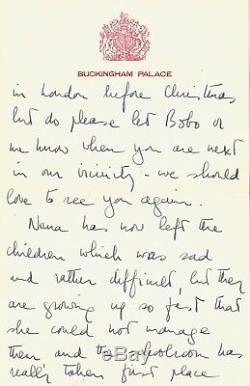 BUCKINGHAM PALACE
in London before Christmas
but do please let Bobo or
me know when you are next
in our vicinity - we should
love to see you again.
Nana has now left the
children which was sad
and rather difficult, but they
are growing up so fast that
she could not manage
them and the schoolroom has
really taken first place